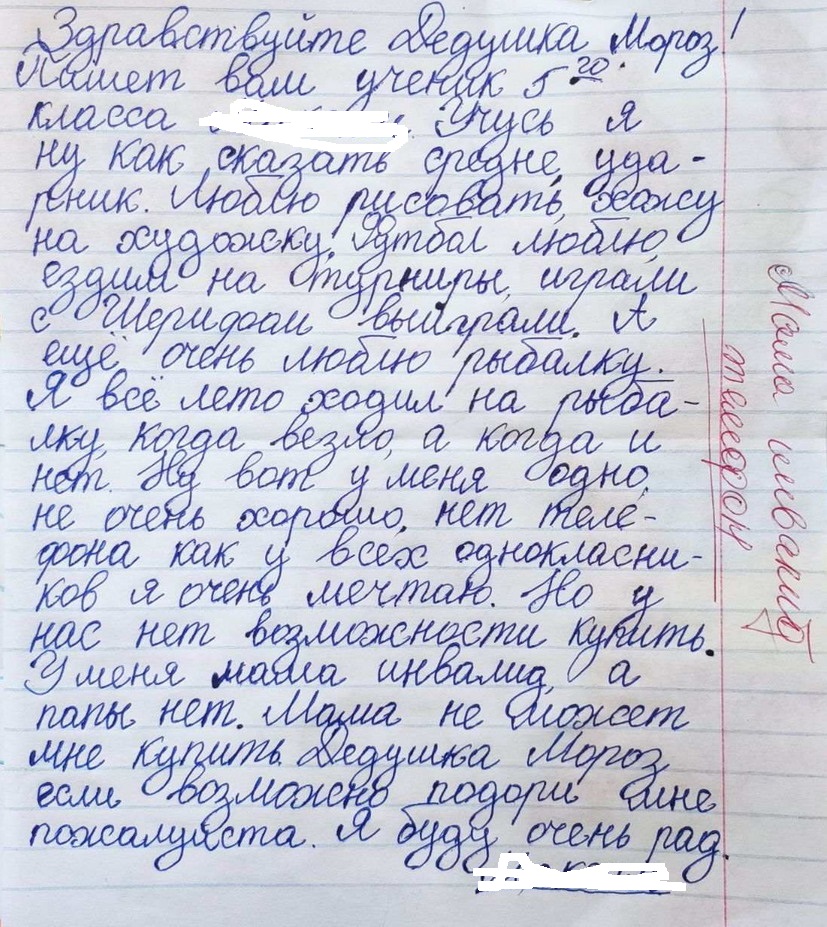 Здравствуйте Дедушка Мороз!
Пишет вам ученик 5 го.
класса Учусь я
ну как сказать средне, уда-
рник. Люблю рисовать, хожу
на художку. Футбол люблю,
ездили на турниры, играли
с Шерифом выиграли. А
ещё очень люблю рыбалку.
Я всё лето ходил на рыба-
лку, когда везло, а когда и
нет. Ну вот у меня одно,
не очень хорошо, нет теле-
фона как у всех однокласни-
ков я очень мечтаю. Но у
нас нет возможности купить.
У меня мама инвалид, а
папы нет. Мама не может
мне купить. Дедушка Мороз
если возможно подари мне
пожалуйста. Я буду очень рад.
Мама инвалид
телефон